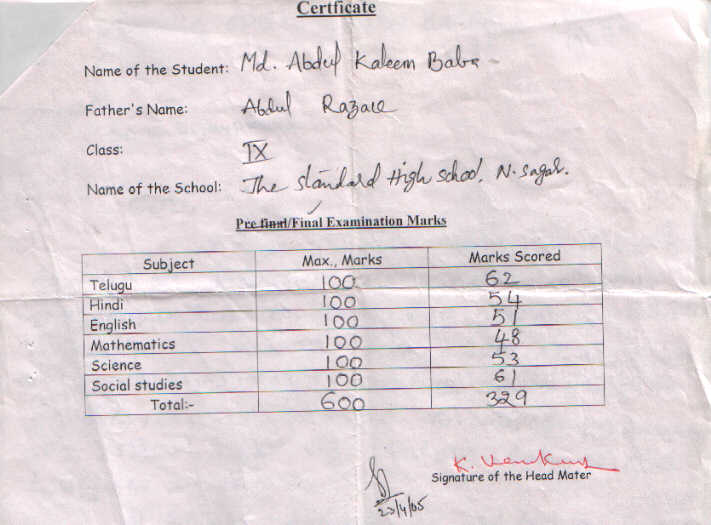 Certficate
Name of the Student: Md. Abdul Kaleem Baba
Father's Name: Abdul Razak
Class: IX
Name of the School: The standard High school, N. sagar.
Pre final/Final Examination Marks
Subject Max., Marks Marks Scored
Telugu 100 62
Hindi 100 54
English 100 51
Mathematics 100 48
Science 100 53
Social studies 100 61
Total:- 600 329
K.
Signature of the Head Mater
23/4/05